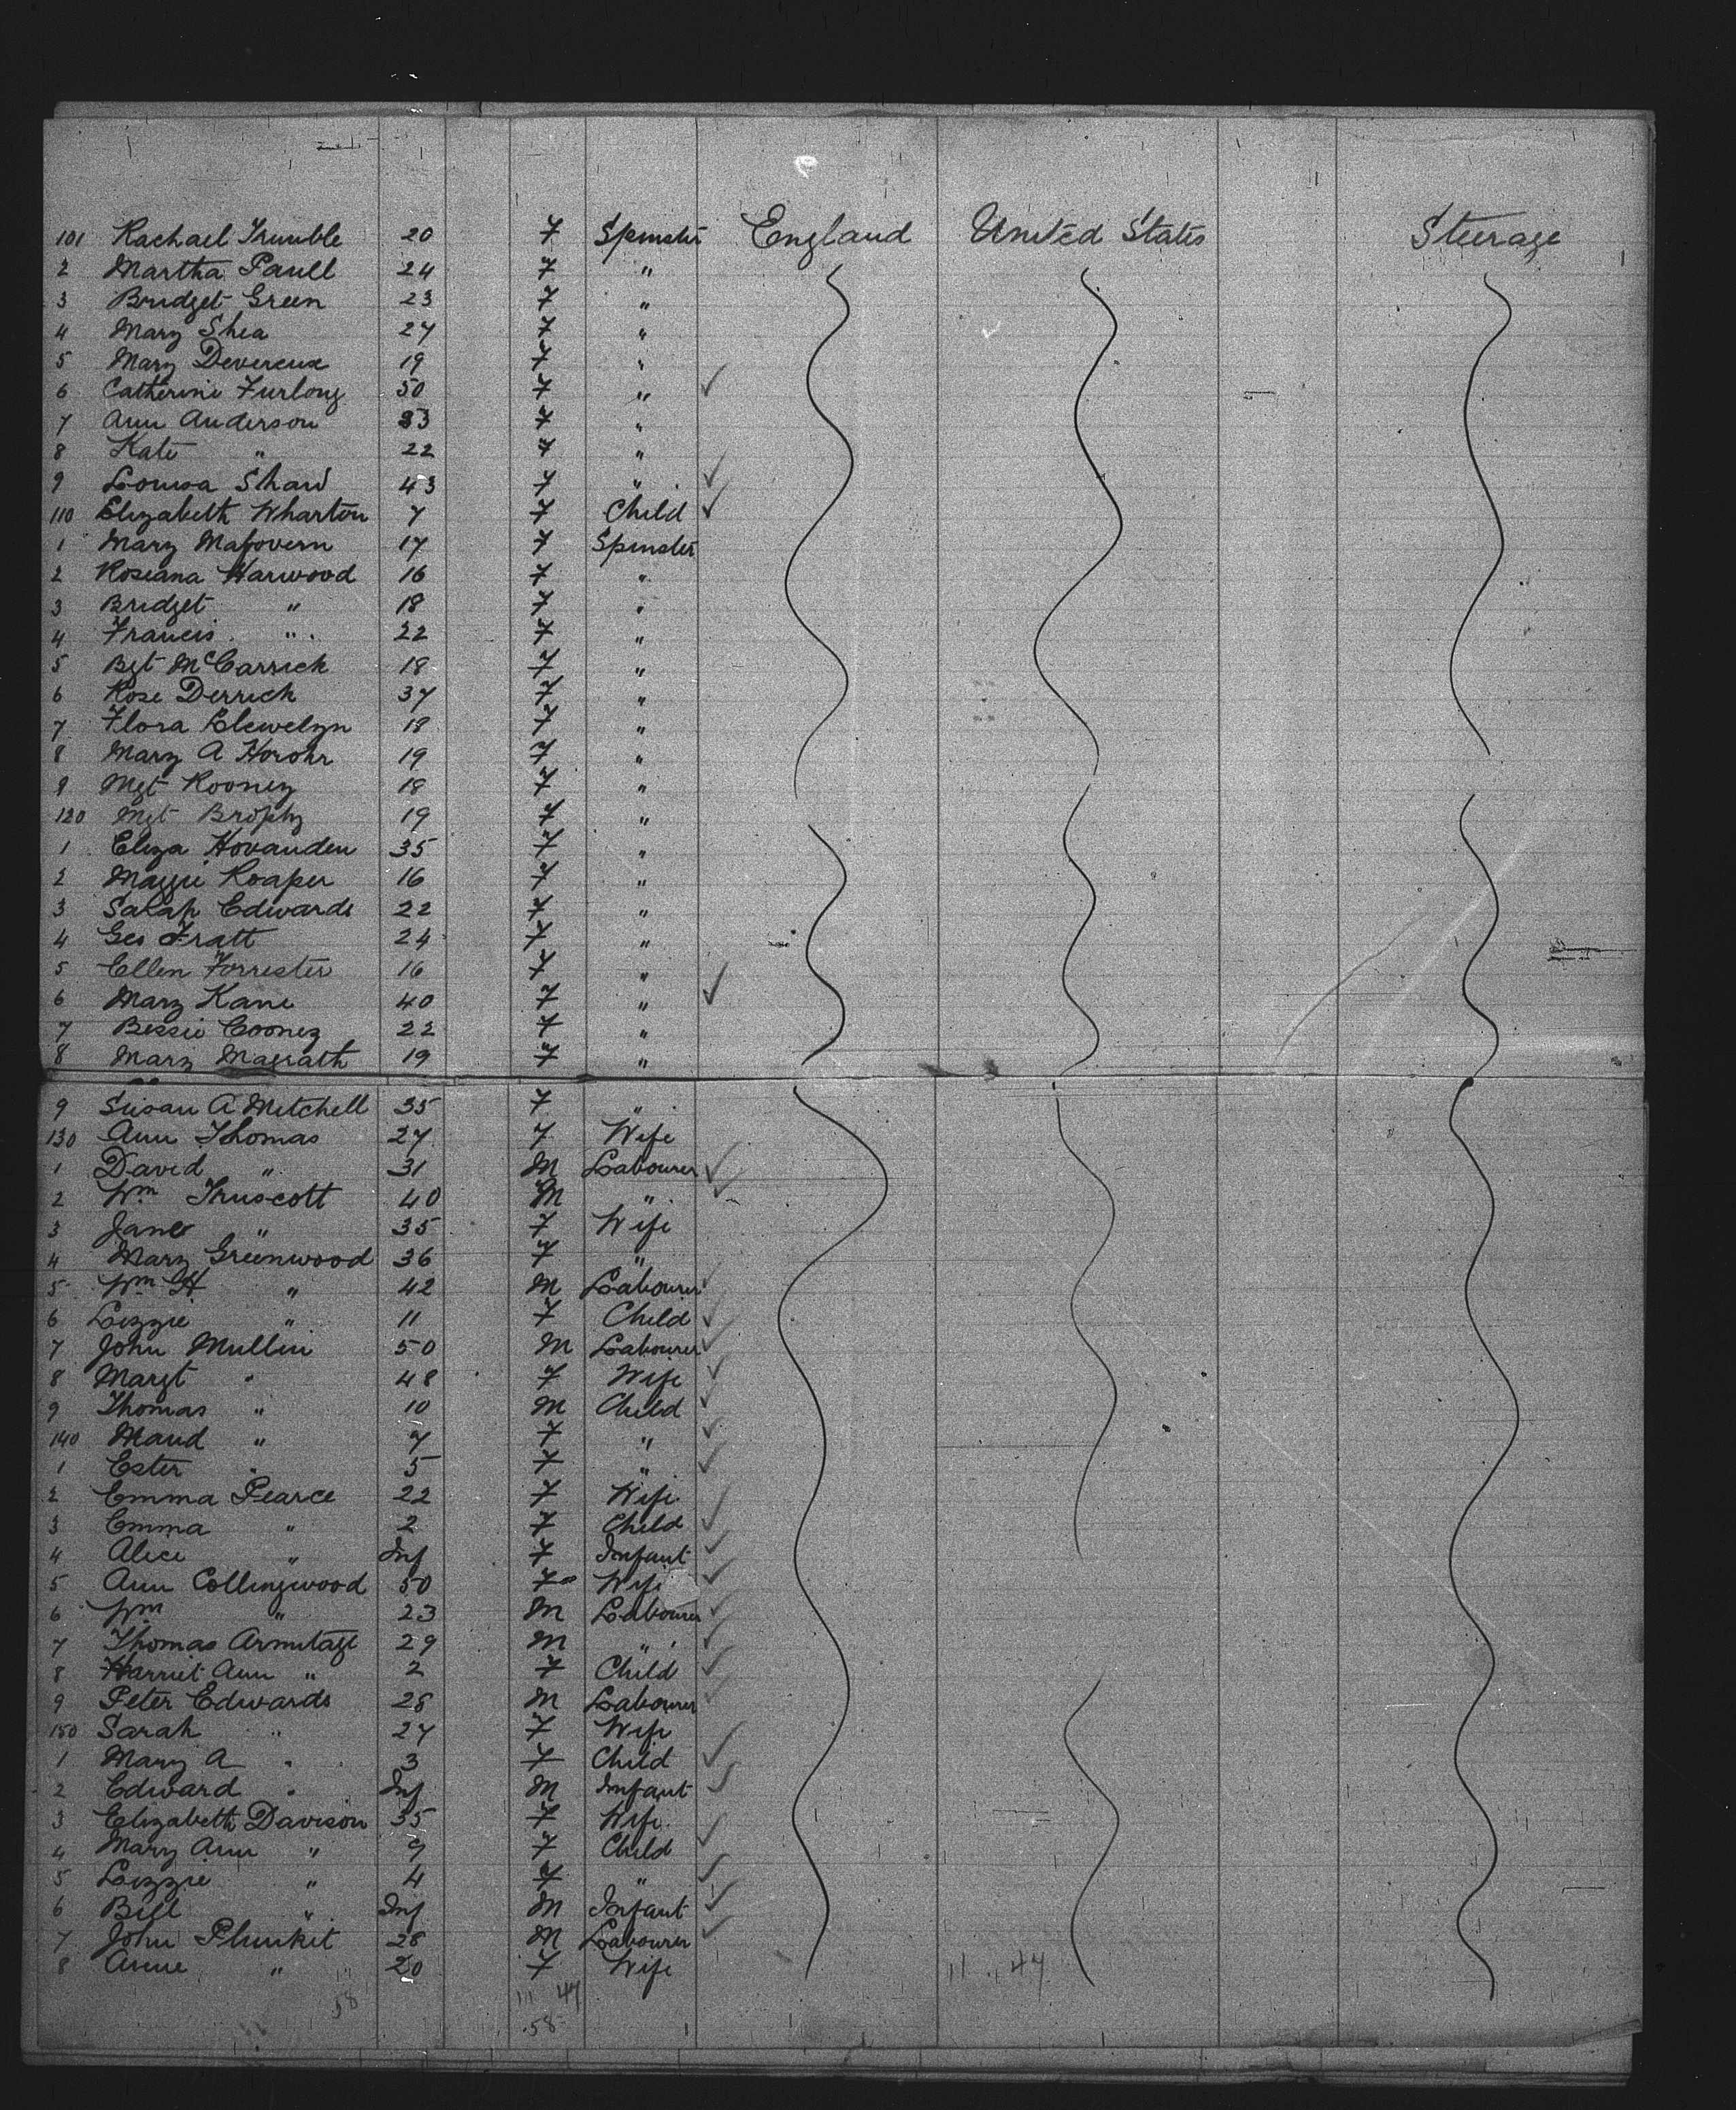 101 Rachael Trumble 20 F Spinster England United States Steerage
2 Martha Paull 24 F "
3 Bridget Green 23 F "
4 Mary Shea 27 F "
5 Mary Devereux 19 F "
6 Catherine Furlong 50 F " ✓
7 Ann Anderson F "
8 Kate " 22 F "
9 Louisa Shaw 43 F " ✓
110 Elizabeth Wharton 7 F Child ✓
1 Mary 17 F Spinster
2 Roseana Harwood 16 F "
3 Bridget " 18 F "
4 Francis " 22 F "
5 Bgt McCarrick 18 F "
6 Rose Derrick 37 F "
7 Flora Llewelyn 18 F "
8 Mary A 19 F "
9 Mgt Rooney 18 F "
120 Mgt Brophy 19 F "
1 Eliza Hovanden 35 F "
2 Maggie Roaper 16 F "
3 Sarah Edwards 22 F "
4 Geo 24 F "
5 Ellen Forrester 16 F "
6 Mary Kane 40 F " ✓
7 Bessie Cooney 22 F "
8 Mary Magrath 19 F "
9 Susan A Mitchell 35 F "
130 Ann Thomas 27 F Wife
1 David " 31 M Labourer ✓
2 Wm Truscott 40 M " ✓
3 Jane " 35 F Wife
4 Mary Greenwood 36 F "
5 Wm H " 42 M Labourer ✓
6 Lizzie " 11 F Child ✓
7 John Mullin 50 M Labourer ✓
8 Margt " 48 F Wife ✓
9 Thomas " 10 M Child ✓
140 Maud " 7 F " ✓
1 Ester " 5 F " ✓
2 Emma Pearce 22 F Wife ✓
3 Emma " 2 F Child ✓
4 Alice " Inf F Infant ✓
5 Ann Collingwood 50 F Wife ✓
6 Wm " 23 M Labourer ✓
7 Thomas Armitage 29 M " ✓
8 Harriet Ann " 2 F Child ✓
9 Peter Edwards 28 M Labourer ✓
150 Sarah " 27 F Wife ✓
1 Mary A " 3 F Child ✓
2 Edward " Inf M Infant ✓
3 Elizabeth Davison 35 F Wife ✓
4 Mary Ann " 9 F Child ✓
5 Lizzie " 4 F " ✓
6 Bill " Inf M Infant ✓
7 John Plunkit 28 M Labourer ✓
8 Anne " 20 F Wife
11 47 11 47
58 58